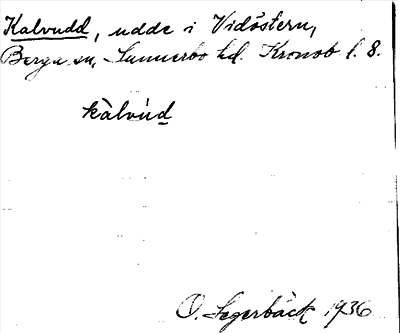 Kalvudd, udde i Vidöstern,
Berga sn, Sunnerbo hd. Kronob l. 8.
kàlvúd
O. Segerbäck 1936